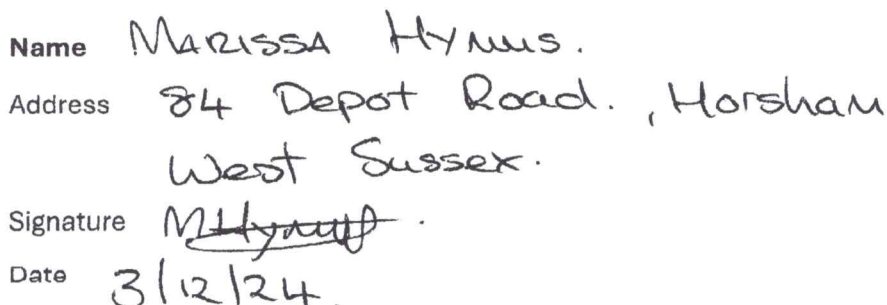 Name MARISSA HYNUS.
Address 84 Depot Road., Horsham
West Sussex.
Signature MHynus.
Date 3/12/24.